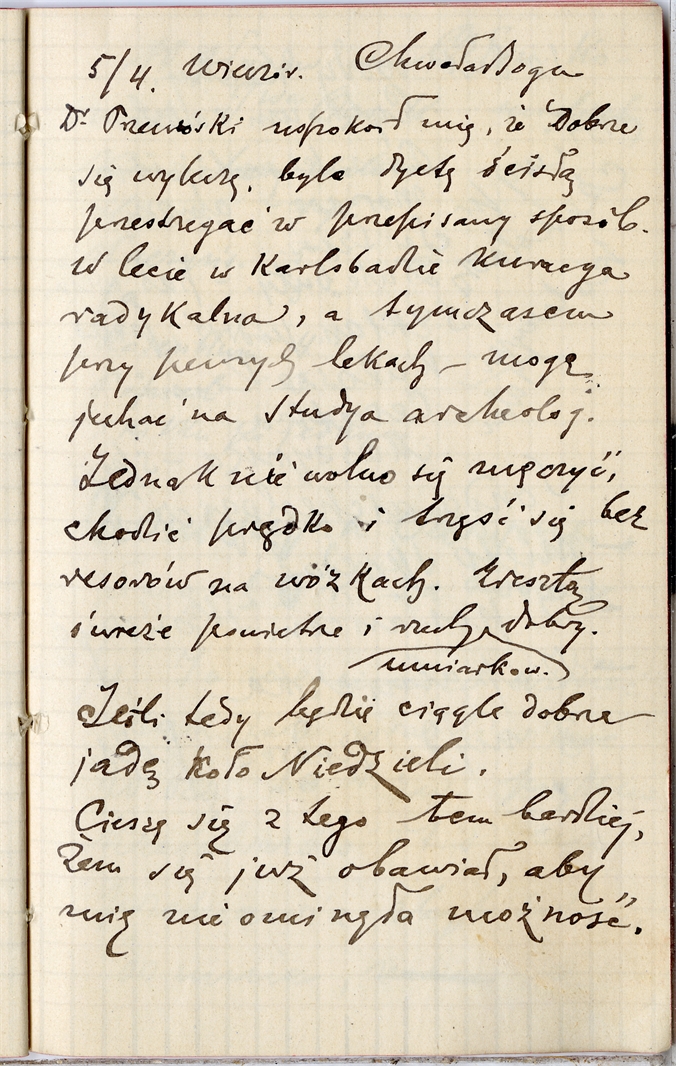 5/4. Wieczór. Chwała Bogu
Dr Przewóski uspokoił mię, że dobrze
się wyleczę, byle dyetę ścisłą
przestrzegać w przepisany sposób.
W lecie w Karlsbadzie kuracya
radykalna, a tymczasem
przy pewnych lekach – mogę
jechać na studya archeolog.
Jednak nie wolno się męczyć,
chodzić prędko i trząść się bez
resorów na wózkach. Zresztą
świeże powietrze i ruch dobry.
umiarkow.
Jeśli tedy będzie ciągle dobrze
jadę koło Niedzieli.
Cieszę się z tego tem bardziej,
żem się już obawiał, aby
mię nie ominęła możność.